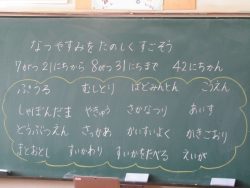 なつやすみをたのしくすごそう
7がつ21にちから 8がつ31にちまで 42にちかん
ぷうる むしとり ばどみんとん こうえん
しゃぼんだま やきゅう さかなつり あいす
どうぶつえん さっかあ かいすいよく かきごおり
まとおとし すいかわり すいかをたべる えいが